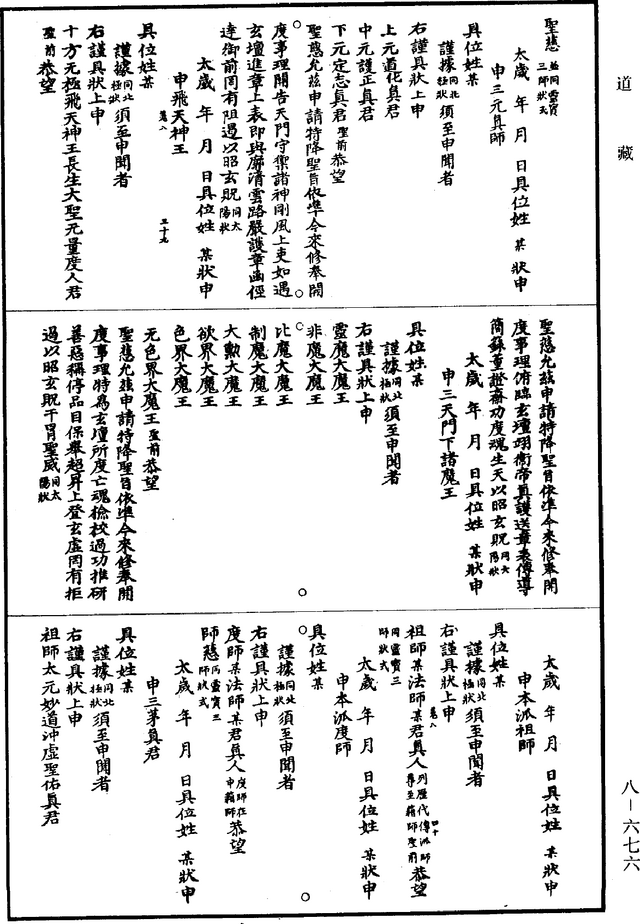 道藏
聖慈並同靈寶三師狀天
太歲 年 月 日具位姓 某 狀申
申三元真師
具位姓某
謹據同北極狀須至申聞者
右謹具狀上申
上元道化真君
中元護正真君
下元定志真君聖前恭望
聖慈允茲申請特降聖旨依準今來修奉開
度事理關告天門守禦諸神剛風上吏如遇
玄壇進章上表即與廓清雲路嚴護章函徑
達御前罔有阻遏以昭玄貺同太陽狀
太歲 年 月 日具位姓 某狀申
申飛天神王
卷八 三十九
具位姓某
謹據同北極狀須至申聞者
右謹具狀上申
十方无極飛天神王長生大聖无量度人君
聖前恭望
聖慈允茲申請特降聖旨依準今來修奉開
度事理俯臨玄壇翊衛帝真護送章表傳導
簡錄董證齋功度魂生天以昭玄貺同太陽狀
太歲 年 月 日具位姓 某狀申
申三天門下諸魔王
具位姓某
謹據同北極狀須至申聞者
右謹具狀上申
靈魔大魔王
非魔大魔王
比魔大魔王
制魔大魔王
大勳大魔王
欲界大魔王
色界大魔王
无色界大魔王聖前恭望
聖慈允茲申請特降聖旨依準今來修奉開
度事理特為玄壇所度亡魂檢校過功推研
善惡稱停品目保舉超昇上登玄虛罔有拒
遏以昭玄貺干冒聖威同太陽狀
太歲 年 月 日具位姓 某狀申
申本派祖師
具位姓某
謹據同北極狀須至申聞者
右謹具狀上申
卷八 四十
祖師某法師某君真人列歷代傳派師尊至籍師聖前恭望
同靈寶三師狀式
太歲 年 月 日具位姓 某狀申
申本派度師
具位姓某
謹據同北極狀須至申聞者
右謹具狀上申
度師某法師某君真人度師在申籍師恭望
師慈同靈寶三師狀式
太歲 年 月 日具位姓 某狀申
申三茅真君
具位姓某
謹據同北極狀須至申聞者
右謹具狀上申
祖師太元妙道沖虛聖佑真君
八—六七六